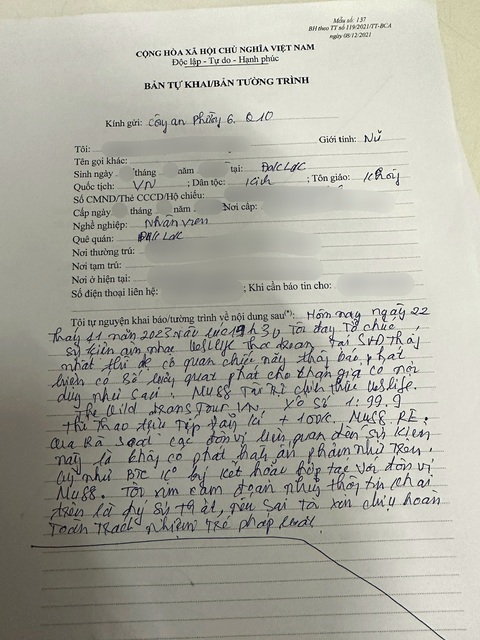 Mẫu số: 137
BH theo TT số 119/2021/TT-BCA
ngày 08/12/2021
CỘNG HÒA XÃ HỘI CHỦ NGHĨA VIỆT NAM
Độc lập - Tự do - Hạnh phúc
BẢN TỰ KHAI/BẢN TƯỜNG TRÌNH
Kính gửi: Công an Phường 6. Q10
Tôi: Giới tính: Nữ
Tên gọi khác:
Sinh ngày tháng năm tại: Đắk Lắk
Quốc tịch: VN; Dân tộc: Kinh; Tôn giáo: Không
Số CMND/Thẻ CCCD/Hộ chiếu:
Cấp ngày tháng năm Nơi cấp:
Nghề nghiệp: Nhân viên
Quê quán: Đắk Lắk
Nơi thường trú:
Nơi tạm trú:
Nơi ở hiện tại:
Số điện thoại liên hệ: ; Khi cần báo tin cho:
Tôi tự nguyện khai báo/tường trình về nội dung sau(*): Hôm nay ngày 22
tháng 11 năm 2023 vào lúc 19h30 Tôi đang Tổ chức
sự kiện âm nhạc tại SVĐ Thống
nhất thì được cơ quan chức năng thông báo phát
hiện có số lượng quạt phát cho khán giả có nội
dung như sau: MU88 Tài Trợ chính thức Westlife.
The Wild Dreams Tour VN, Xổ Số 1:99.9
Thể Thao đầu Tiên + 100K. MU88 RE.
Qua Rà Soát các đơn vị liên quan đến sự kiện
này là không có phát hành ấn phẩm như trên,
cũng như BTC ký kết hoặc hợp tác với đơn vị
MU88. Tôi xin cam đoan những thông tin khai
trên là đúng sự thật, nếu sai tôi xin chịu hoàn
Toàn Trách nhiệm trước pháp luật.